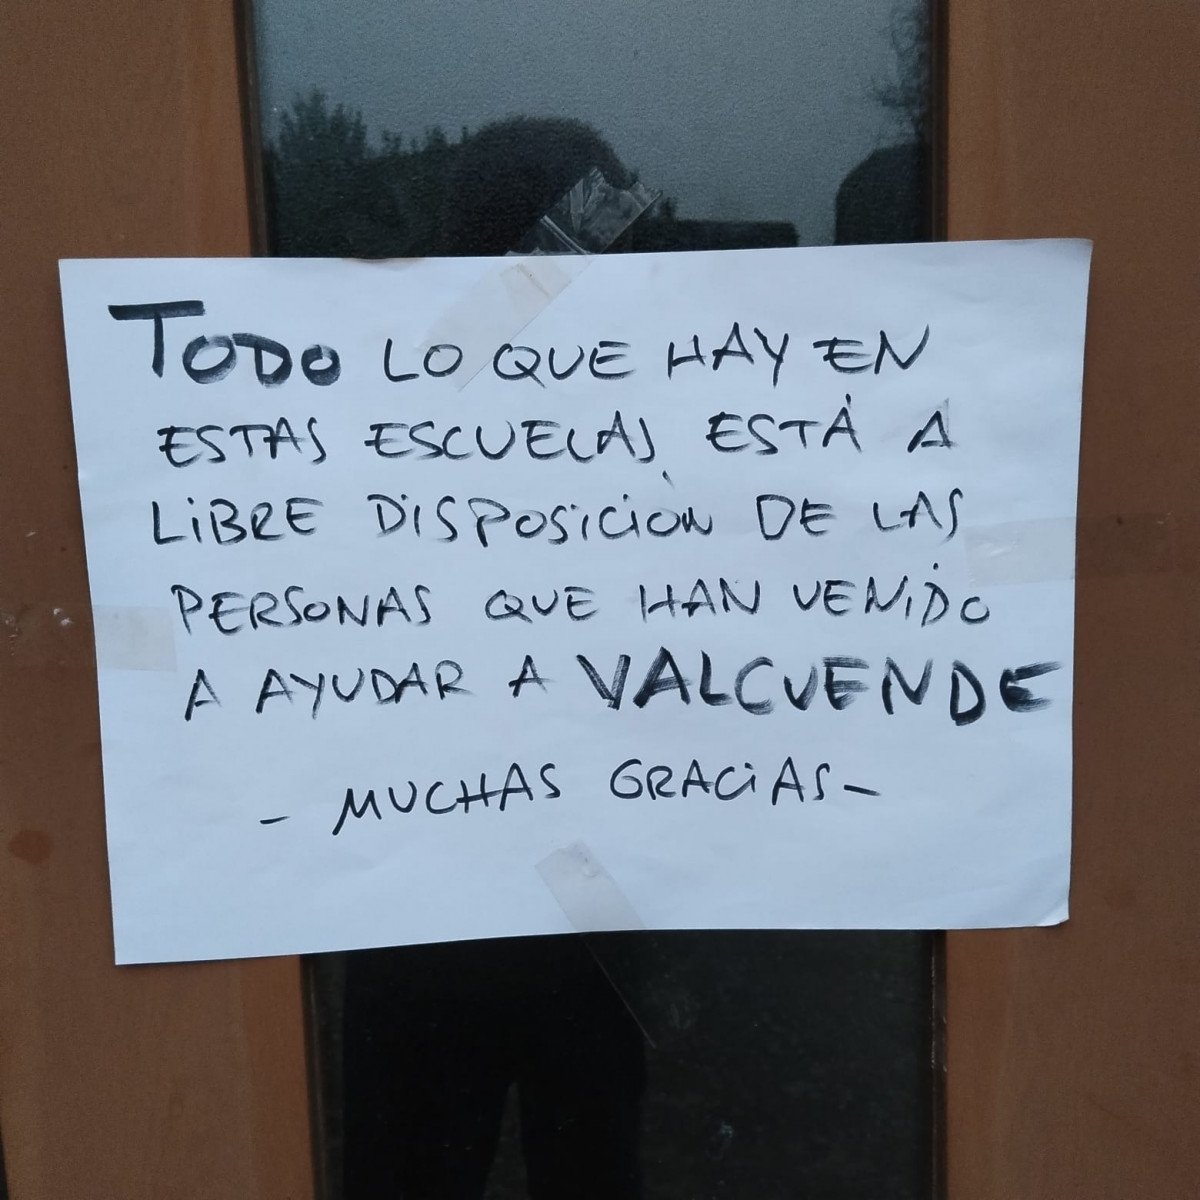 TODO LO QUE HAY EN
ESTAS ESCUELAS ESTÁ A
LIBRE DISPOSICIÓN DE LAS
PERSONAS QUE HAN VENIDO
A AYUDAR A VALCUENDE
- MUCHAS GRACIAS -